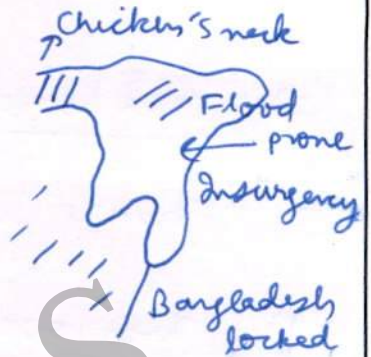 Chicken's neck
Flood
prone
Insurgency
Bangladesh
locked